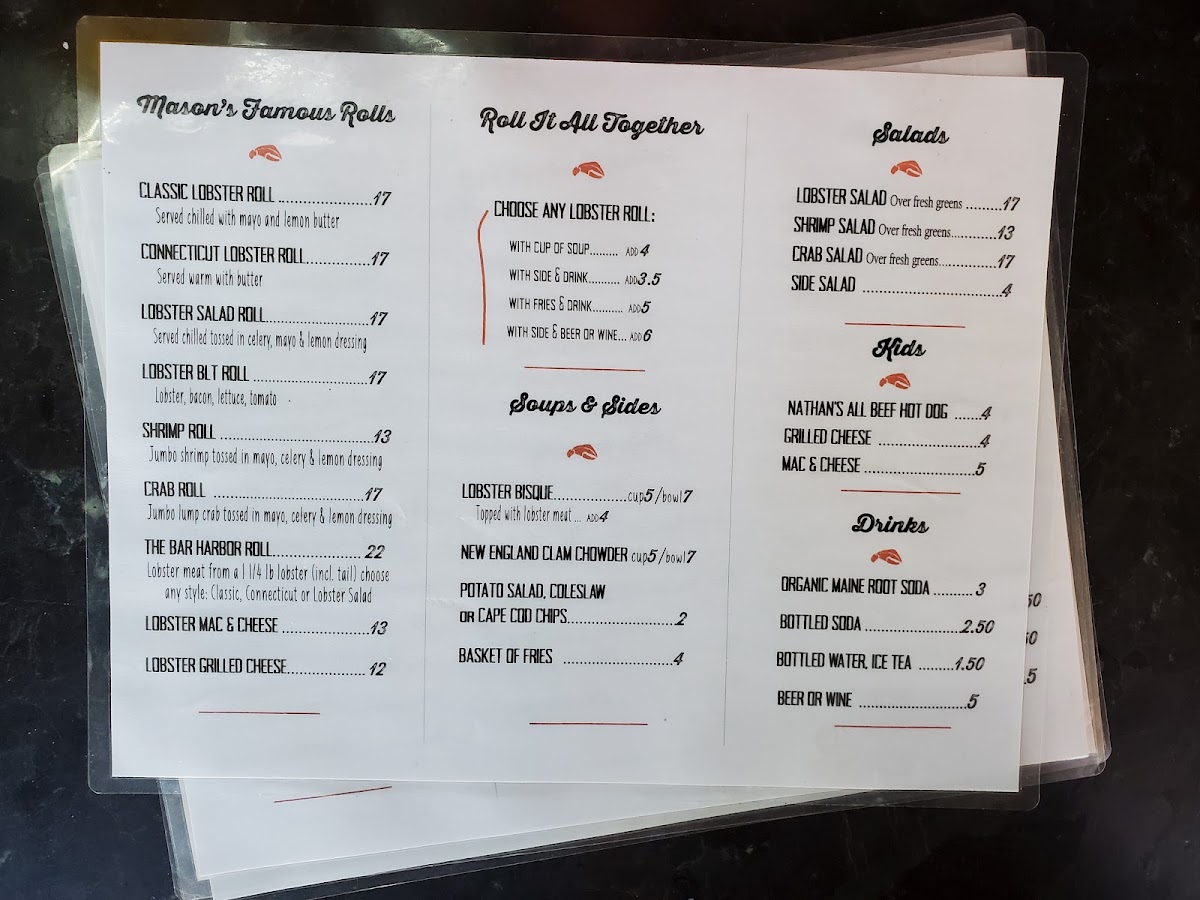 Mason's Famous Rolls
CLASSIC LOBSTER ROLL ........................17
Served chilled with mayo and lemon butter
CONNECTICUT LOBSTER ROLL................17
Served warm with butter
LOBSTER SALAD ROLL..........................17
Served chilled tossed in celery, mayo & lemon dressing
LOBSTER BLT ROLL .............................17
Lobster, bacon, lettuce, tomato
SHRIMP ROLL ......................................13
Jumbo shrimp tossed in mayo, celery & lemon dressing
CRAB ROLL ......................................17
Jumbo lump crab tossed in mayo, celery & lemon dressing
THE BAR HARBOR ROLL...................... 22
Lobster meat from a 1 1/4 lb lobster (incl. tail) choose
any style: Classic, Connecticut or Lobster Salad
LOBSTER MAC & CHEESE ......................13
LOBSTER GRILLED CHEESE.................... 12
Roll It All Together
CHOOSE ANY LOBSTER ROLL:
WITH CUP OF SOUP......... ADD 4
WITH SIDE & DRINK.......... ADD3.5
WITH FRIES & DRINK.......... ADD5
WITH SIDE & BEER OR WINE... ADD 6
Soups & Sides
LOBSTER BISQUE..................cup5/bowl7
Topped with lobster meat ... ADD4
NEW ENGLAND CLAM CHOWDER cup5/bowl7
POTATO SALAD, COLESLAW
OR CAPE COD CHIPS...........................2
BASKET OF FRIES ...........................4
Salads
LOBSTER SALAD Over fresh greens .........17
SHRIMP SALAD Over fresh greens...........13
CRAB SALAD Over fresh greens..............17
SIDE SALAD ...................................4
Kids
NATHAN'S ALL BEEF HOT DOG ......4
GRILLED CHEESE .........................4
MAC & CHEESE...........................5
Drinks
ORGANIC MAINE ROOT SODA ..........3
BOTTLED SODA.......................2.50
BOTTLED WATER, ICE TEA ........1.50
BEER OR WINE ...........................5
50
50
.5